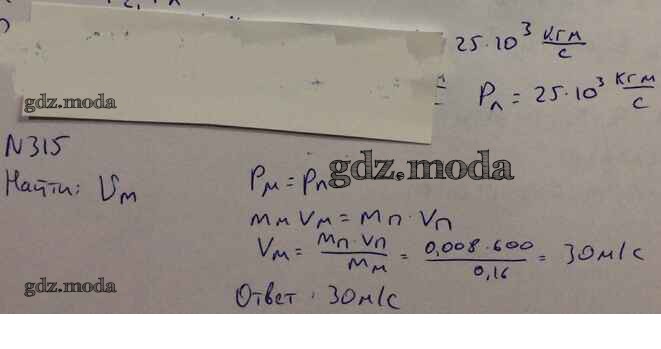 25·10³ кг м/с
gdz.moda
Pл = 25·10³ кг м/с
N315
Найти: Vм
Pм = Pп
gdz.moda
mм Vм = mп · Vп
Vм = mп · Vп / mм = 0,008 · 600 / 0,16 = 30 м/с
gdz.moda
Ответ: 30 м/с